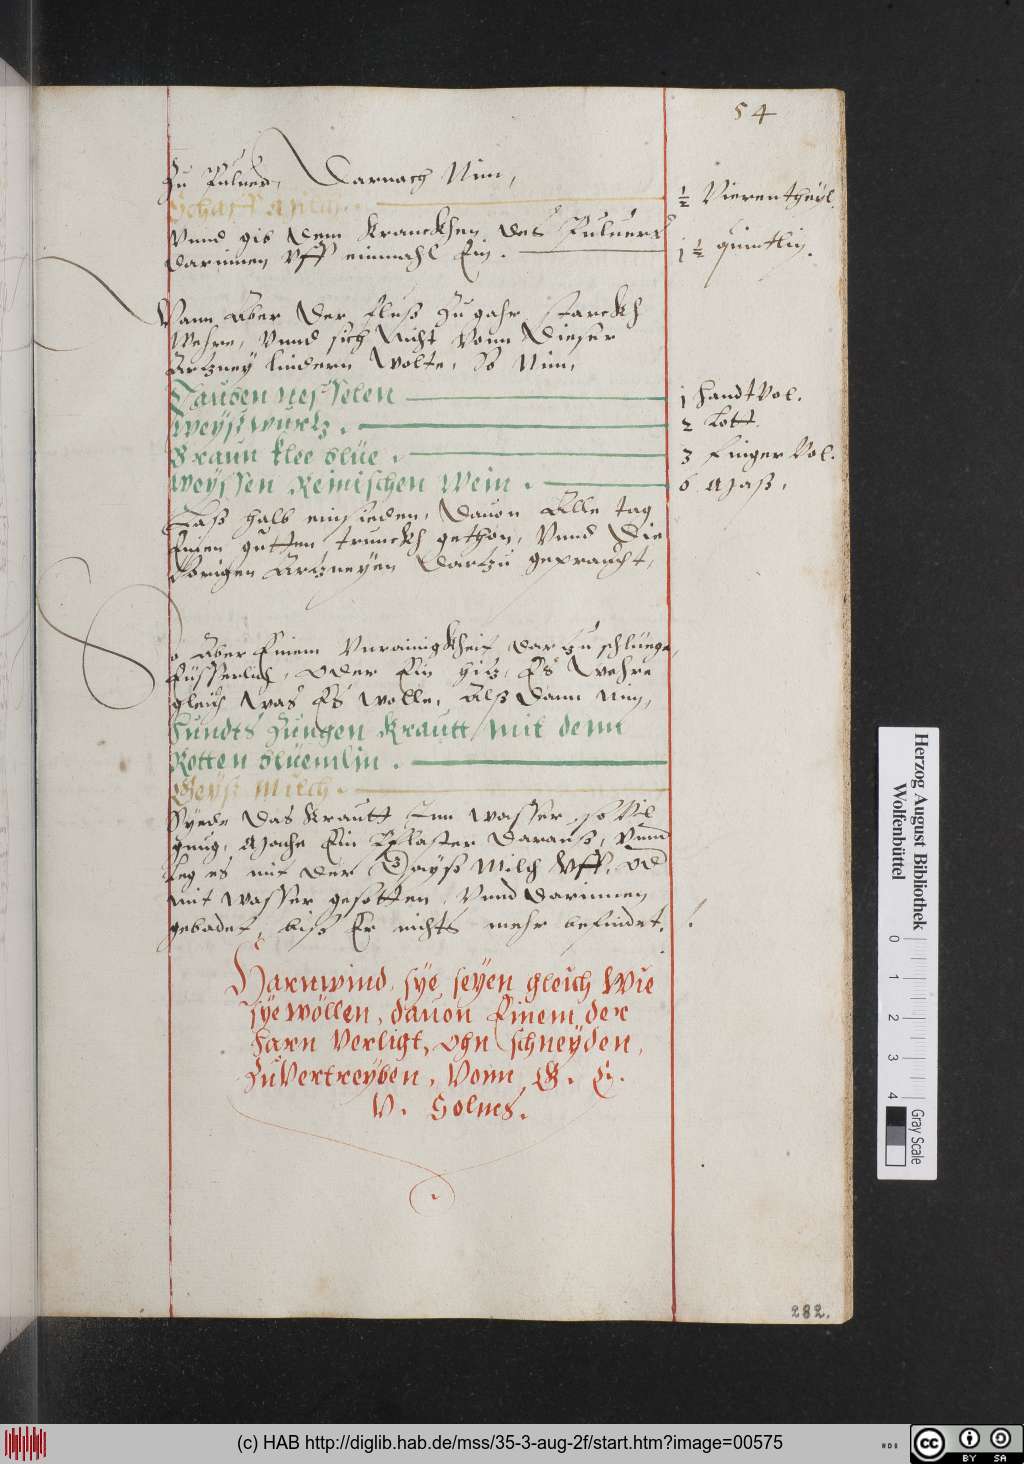 54
Zu Puluer, Darnach Nim,
Schaff Milch. ½ Vierentheyl.
Vnnd gib dem Kranckhen des Puluers
darinnen Vff einmahl Ein. 1 ½ quintlin.
Wann Aber der fluß Zu gahr starckh
Wehre, Vnnd sich Nicht Vonn Dieser
Artzney lindern Wolte, So Nim,
Tauben Nesselen 1 Handt Vol.
Weyßwurtz. 2 Lott.
Braun klee blüe. 3 Finger Vol.
Weyssen Reinischen Wein. 6 Maß.
Laß halb einsieden, Dauon Alle tag
Einen gutten trunckh gethon, Vnnd Die
Vorigen Artzneyen Dartzu gepraucht,
So Aber Einem Vnrainigkheit dar Zu schluege,
Eüsserlich, oder Ein hitz, Es Wehre
gleich Was Es Wolle, Alß Dann Nim,
Hundts Zungen Krautt mit denn
Rotten blüemlin.
Geyß Milch.
Syede Das Krautt Inn Wasser so Vil
gnug, Mache Ein Pflaster Darauß, Vnnd
leg es mit der Gayß Milch Vff, od
mit Wasser gesotten, Vnnd Darinnen
gebadet, biß Er nichts mehr befindet.
Harnwind, sye seyen gleich Wie
sye wöllen, dauon Einem der
Harn Verligt, ohn schneyden,
Zu Vertreyben, Vonn G. E.
V. Solms.
282.
Herzog August Bibliothek
Wolfenbüttel
0 1 2 3 4
Gray Scale
(c) HAB http://diglib.hab.de/mss/35-3-aug-2f/start.htm?image=00575
cc BY SA